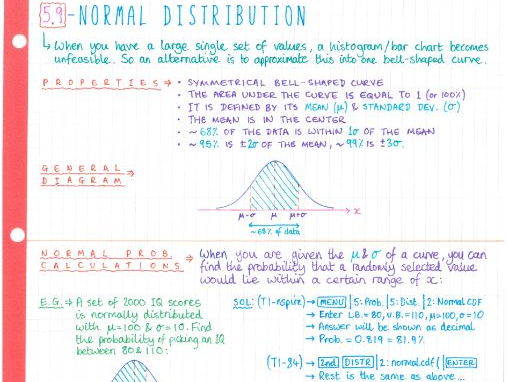 5.9 - NORMAL DISTRIBUTION
↳ When you have a large single set of values, a histogram/bar chart becomes
unfeasible. So an alternative is to approximate this into one bell-shaped curve.
PROPERTIES ⇒ • SYMMETRICAL BELL-SHAPED CURVE
• THE AREA UNDER THE CURVE IS EQUAL TO 1 (or 100%)
• IT IS DEFINED BY ITS MEAN (μ) & STANDARD DEV. (σ)
• THE MEAN IS IN THE CENTER
• ~68% OF THE DATA IS WITHIN 1σ OF THE MEAN
• ~95% IS ±2σ OF THE MEAN, ~99% IS ±3σ.
GENERAL
DIAGRAM ⇒
μ-σ μ μ+σ x
~68% of data
NORMAL PROB.
CALCULATIONS ⇒
When you are given the μ & σ of a curve, you can
find the probability that a randomly selected value
would lie within a certain range of x:
E.G. ⇒ A set of 2000 IQ scores
is normally distributed
with μ=100 & σ=10. Find
the probability of picking an IQ
between 80 & 110:
SOL: (TI-nspire) → MENU | 5: Prob. | 5: Dist. | 2: Normal CDF
→ Enter L.B.= 80, u.B.= 110, μ=100, σ=10
→ Answer will be shown as decimal
→ Prob. = 0.819 = 81.9%
(TI-84) → 2nd DISTR | 2: normalcdf( | ENTER
→ Rest is the same as above...